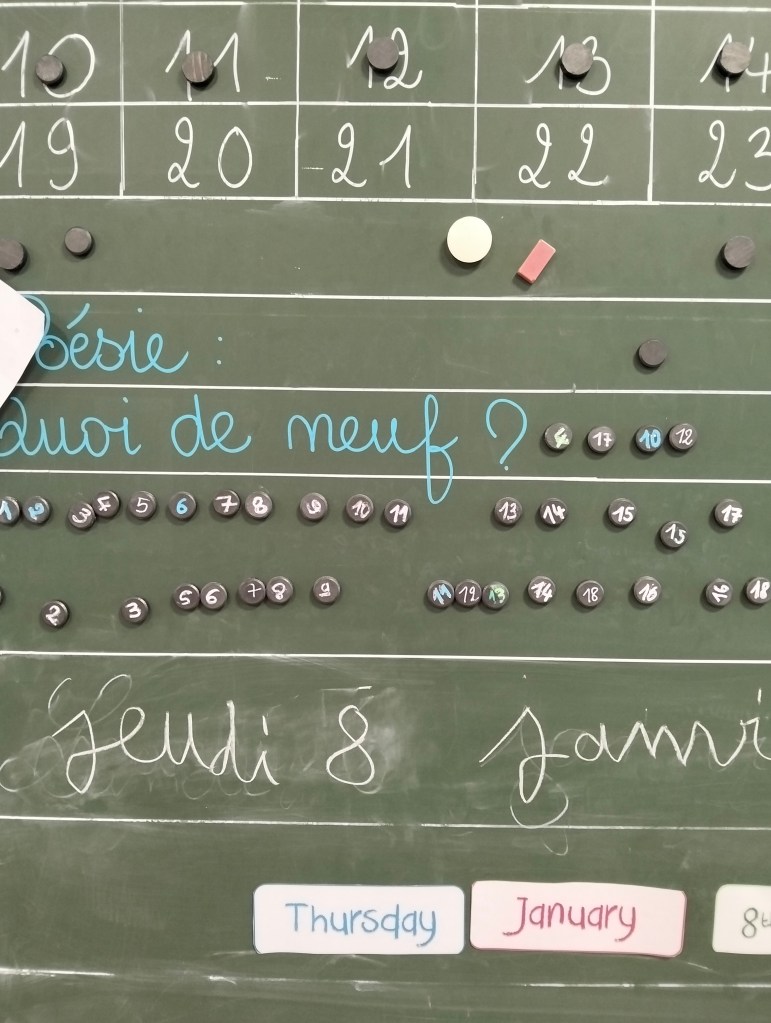 10 11 12 13 14
19 20 21 22 23
Poésie :
Quoi de neuf ? 17 10 12
1 2 3 4 5 6 7 8 9 10 11 13 14 15 15 17
2 3 5 6 7 8 9 11 12 13 14 18 16 16 18
Jeudi 8 janvi
Thursday January 8t